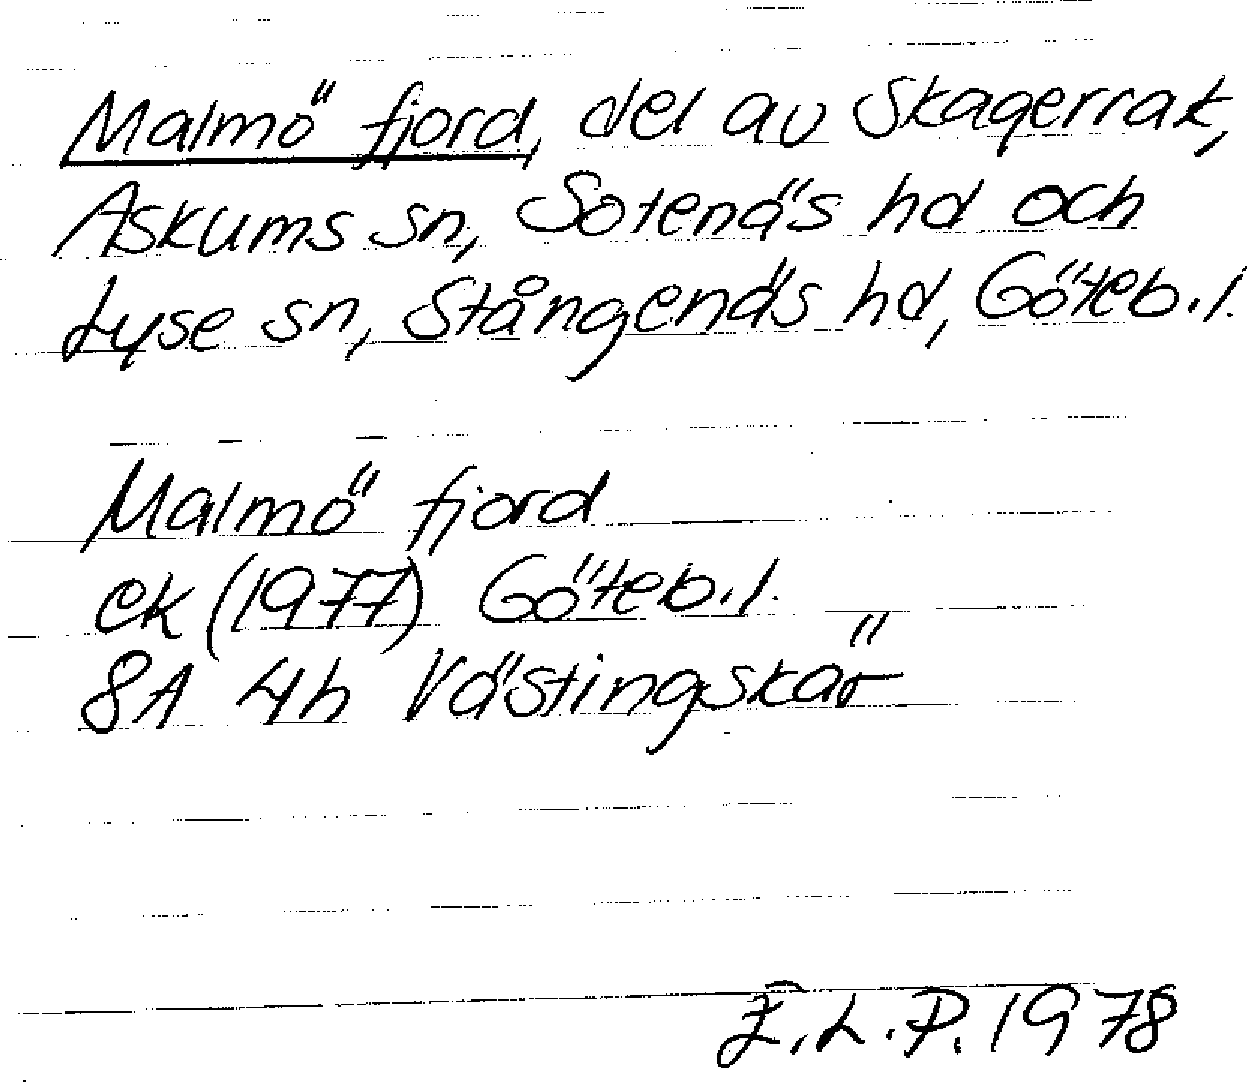 Malmö fjord, del av Skagerrak,
Askums sn, Sotenäs hd och
Lyse sn, Stångenäs hd, Göteb.l.
Malmö fjord
ek (1977) Göteb.l.
8A 4h Västingskär
E.L.P. 1978